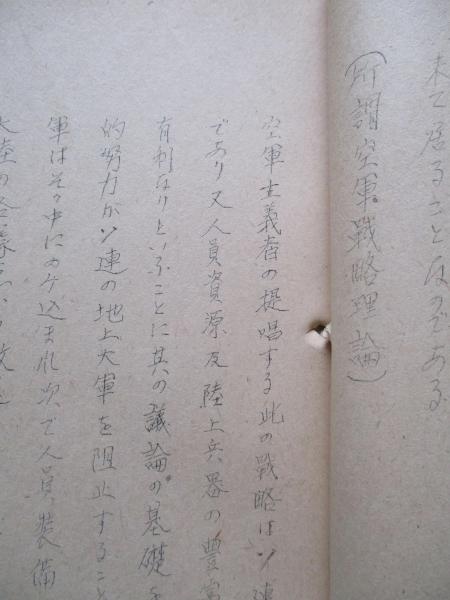 来て居ることなのである
(所謂空軍戦略理論)
空軍主義者の提唱する此の戦略はソ連
であり又人員資源及陸上兵器の豊富
有利なりといふことに其の議論の基礎を
的努力がソ連の地上大軍を阻止すること
軍は其の中にのみ込まれ次で人員、装備
大陸の